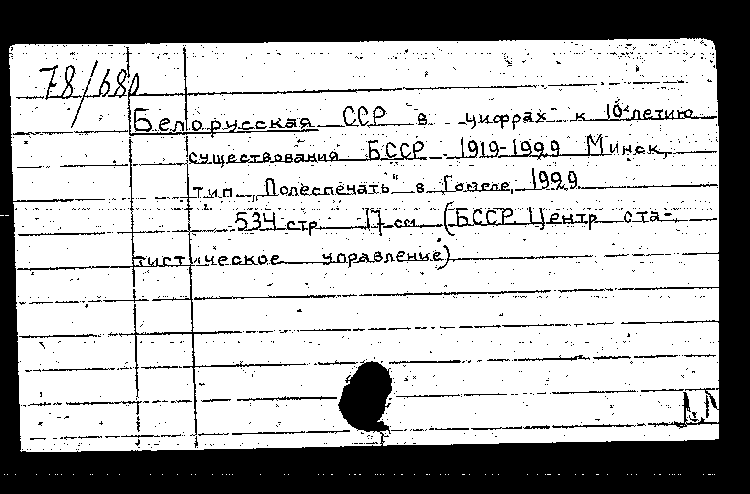 78/680
Белорусская ССР в цифрах к 10-летию
существования БССР 1919-1929 Минск,
тип. „Полеспечать" в Гомеле, 1929
534 стр 17 см (БССР. Центр ста-
тистическое управление)